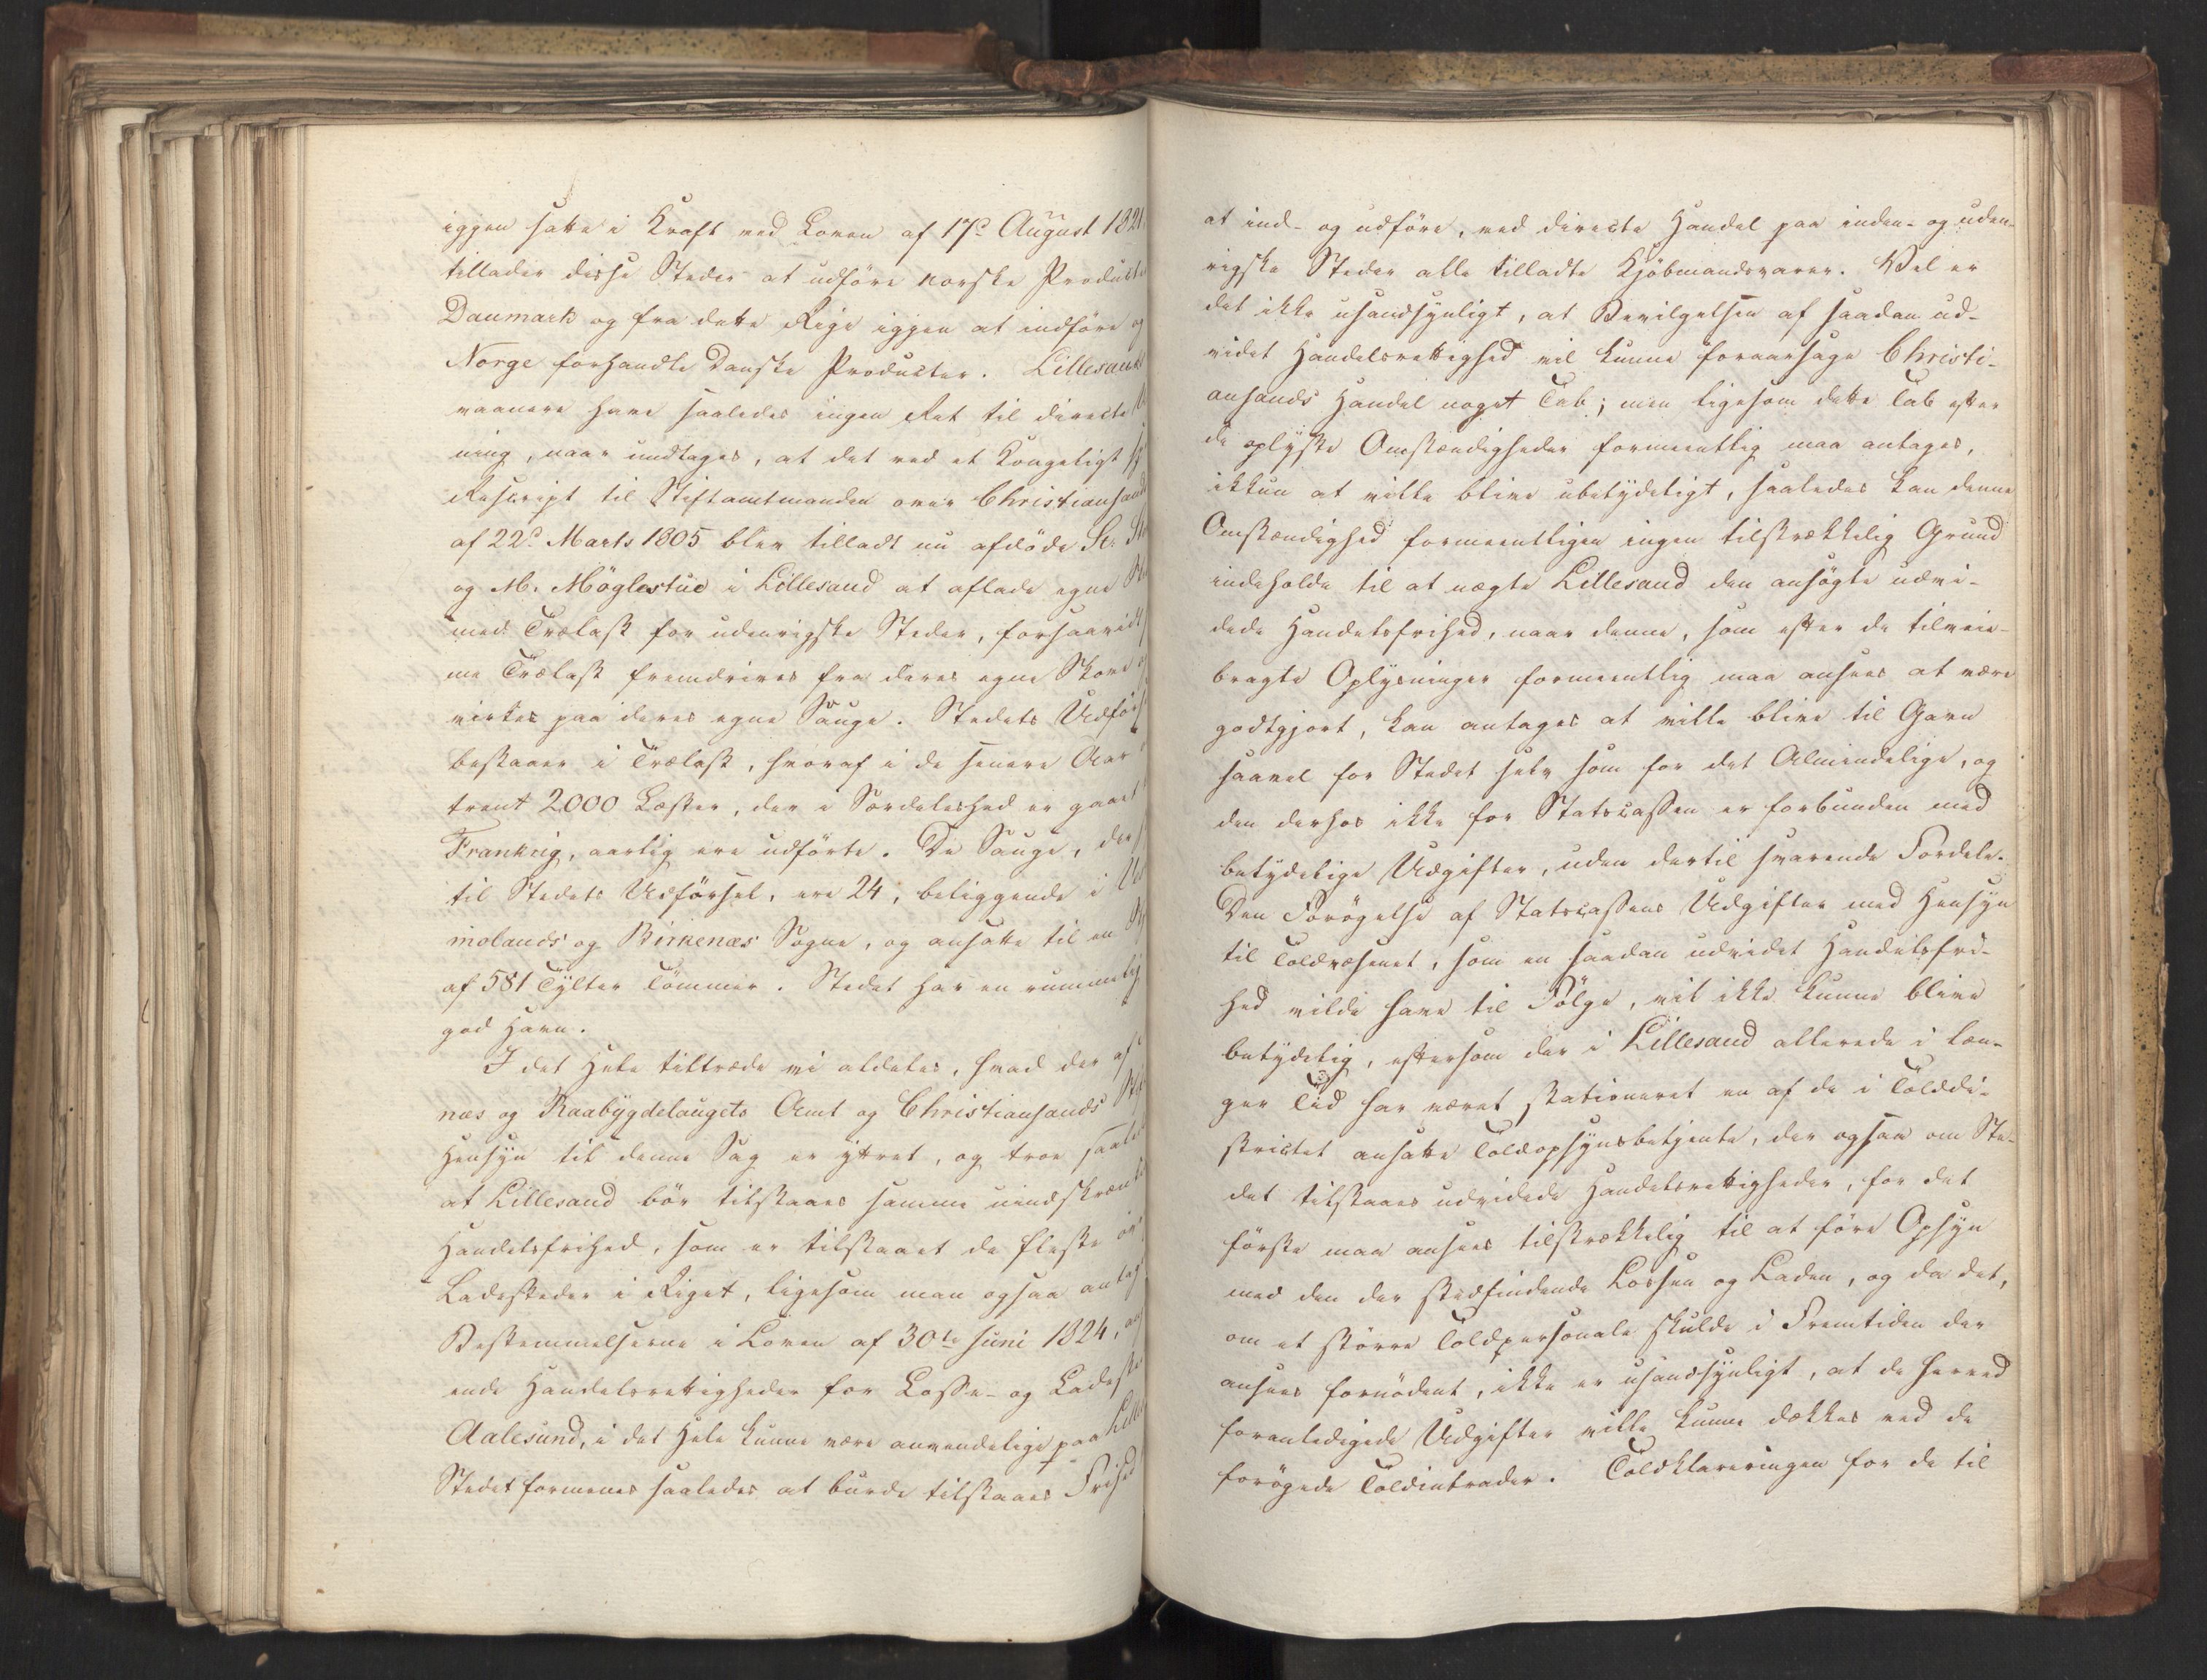 iggjen satte i Kraft ved Loven af 17de August 1821
tillader disse Steder at udföre norske Producte
Danmark og fra dette Rige iggjen at indföre og
Norge forhandle Danske Producter. Lillesands
vaanere have saaledes ingen Ret til directe
ning, naar undtages, at det ved et Kongeligt
Rescript til Stiftamtmanden over Christiansand
af 22de Marts 1805 blev tilladt nu afdöde Sr.
og M. Möglestue i Lillesand at aflade egne
med Trælast for udenrigske Steder, forsaavidt
me Trælast fremdrives fra deres egne Skove
virkes paa deres egne Sauge. Stedets Udförs
bestaaer i Trælast, hvoraf i de senere Aar
trent 2000 Læster, der i Særdeleshed er gaaet
Frankrig, aarlig ere udförte. De Sauge, der
til Stedets Udförsel, ere 24, beliggende i
molands og Birkenæs Sogne, og ansatte til en
af 581 Tylter Tömmer. Stedet har en rummelig
god Havn.
I det Hele tiltræde vi aldeles, hvad der af
næs og Raabygdelaugets Amt og Christiansands
Hensyn til denne Sag er yttret, og troe saaledes
at Lillesand bör tilstaaes samme uindskrænk
Handelsfrihed, som er tilstaaet de fleste
Ladesteder i Riget, ligesom man ogsaa antag
Bestemmelserne i Loven af 30te Juni 1824, ang
ende Handelsrettigheder for Losse- og Ladeste
Aalesund, i det Hele kunne være anvendelige paa Lille
Stedet formenes saaledes at burde tilstaaes Frihed
at ind- og udföre, ved directe Handel paa inden- og uden-
rigske Steder alle tilladte Kjöbmandsvarer. Vel er
det ikke usandsynligt, at Bevilgelsen af saadan ud-
videt Handelsrettighed vil kunne foraarsage Christi-
ansands Handel noget Tab; men ligesom dette Tab efter
de oplyste Omstændigheder formeentlig maa antages,
ikkun at ville blive ubetydeligt, saaledes kan denne
Omstændighed formeentligen ingen tilstrækkelig Grund
indeholde til at nægte Lillesand den ansögte udvi-
dede Handelsfrihed, naar denne, som efter de tilveie-
bragte Oplysninger formeentlig maa ansees at være
godtgjort, kan antages at ville blive til Gavn
saavel for Stedet selv som for det Almindelige, og
den derhos ikke for Statscassen er forbunden med
betydelige Udgifter, uden dertil svarende Fordele.
Den Forögelse af Statscassens Udgifter med Hensyn
til Toldvæsenet, som en saadan udvidet Handelsfri-
hed vilde have til Fölge, vil ikke kunne blive
betydelig, eftersom der i Lillesand allerede i læn-
gere Tid har været stationeret en af de i Tolddi-
strictet ansatte Toldopsynsbetjente, der ogsaa om Ste-
det tilstaaes udvidede Handelsrettigheder, for det
förste maa ansees tilstrækkelig til at före Opsyn
med den der stedfindende Lossen og Laden, og da det,
om et större Toldpersonale skulde i Fremtiden der
ansees fornödent, ikke er usandsynligt, at de herved
foranledigede Udgifter ville kunne dækkes ved de
forögede Toldintrader. Toldklareringen for de til